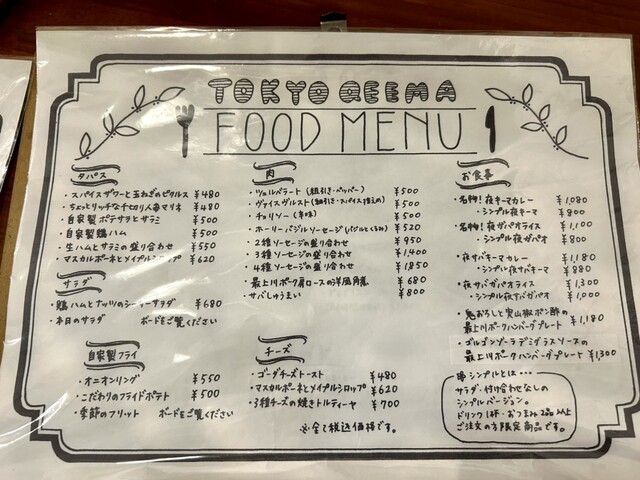 TOKYO QEEMA
FOOD MENU
タパス
・スパイスザワーと玉ねぎのピクルス ¥480
・ちょっとリッチな千切り人参マリネ ¥480
・自家製ポテサラとサラミ ¥500
・自家製鶏ハム ¥500
・生ハムとサラミの盛り合わせ ¥550
・マスカルポーネとメイプルシロップ ¥620
サラダ
・鶏ハムとナッツのシーザーサラダ ¥680
・本日のサラダ ボードをご覧ください
自家製フライ
・オニオンリング ¥550
・こだわりのフライドポテト ¥500
・季節のフリット ボードをご覧ください
肉
・ツェルベラート（粗引き・ペッパー） ¥500
・ヴァイスヴルスト（粗引き・スパイス控えめ） ¥500
・チョリソー（辛味） ¥500
・ホーリーバジルソーセージ（バジルとくるみ） ¥520
・2種ソーセージの盛り合わせ ¥950
・3種ソーセージの盛り合わせ ¥1,400
・4種ソーセージの盛り合わせ ¥1,850
・最上川ポーク肩ロースの洋風角煮 ¥680
・サバしゅうまい ¥800
チーズ
・ゴーダチーズトースト ¥480
・マスカルポーネとメイプルシロップ ¥620
・3種チーズの焼きトルティーヤ ¥700
※全て税込価格です。
お食事
・名物！夜キーマカレー ¥1,080
・シンプル夜キーマ ¥800
・名物！夜ガパオライス ¥1,100
・シンプル夜ガパオ ¥800
・夜サバキーマカレー ¥1,180
・シンプル夜サバキーマ ¥880
・夜サバガパオライス ¥1,300
・シンプル夜サバガパオ ¥1,000
・鬼おろしと実山椒ポン酢の
最上川ポークハンバーグプレート ¥1,180
・ゴルゴンゾーラデミグラスソースの
最上川ポークハンバーグプレート ¥1,300
シンプルとは・・・
サラダ・付け合わせなしの
シンプルバージョン。
ドリンク1杯・おつまみ2品以上
ご注文の方限定商品です。